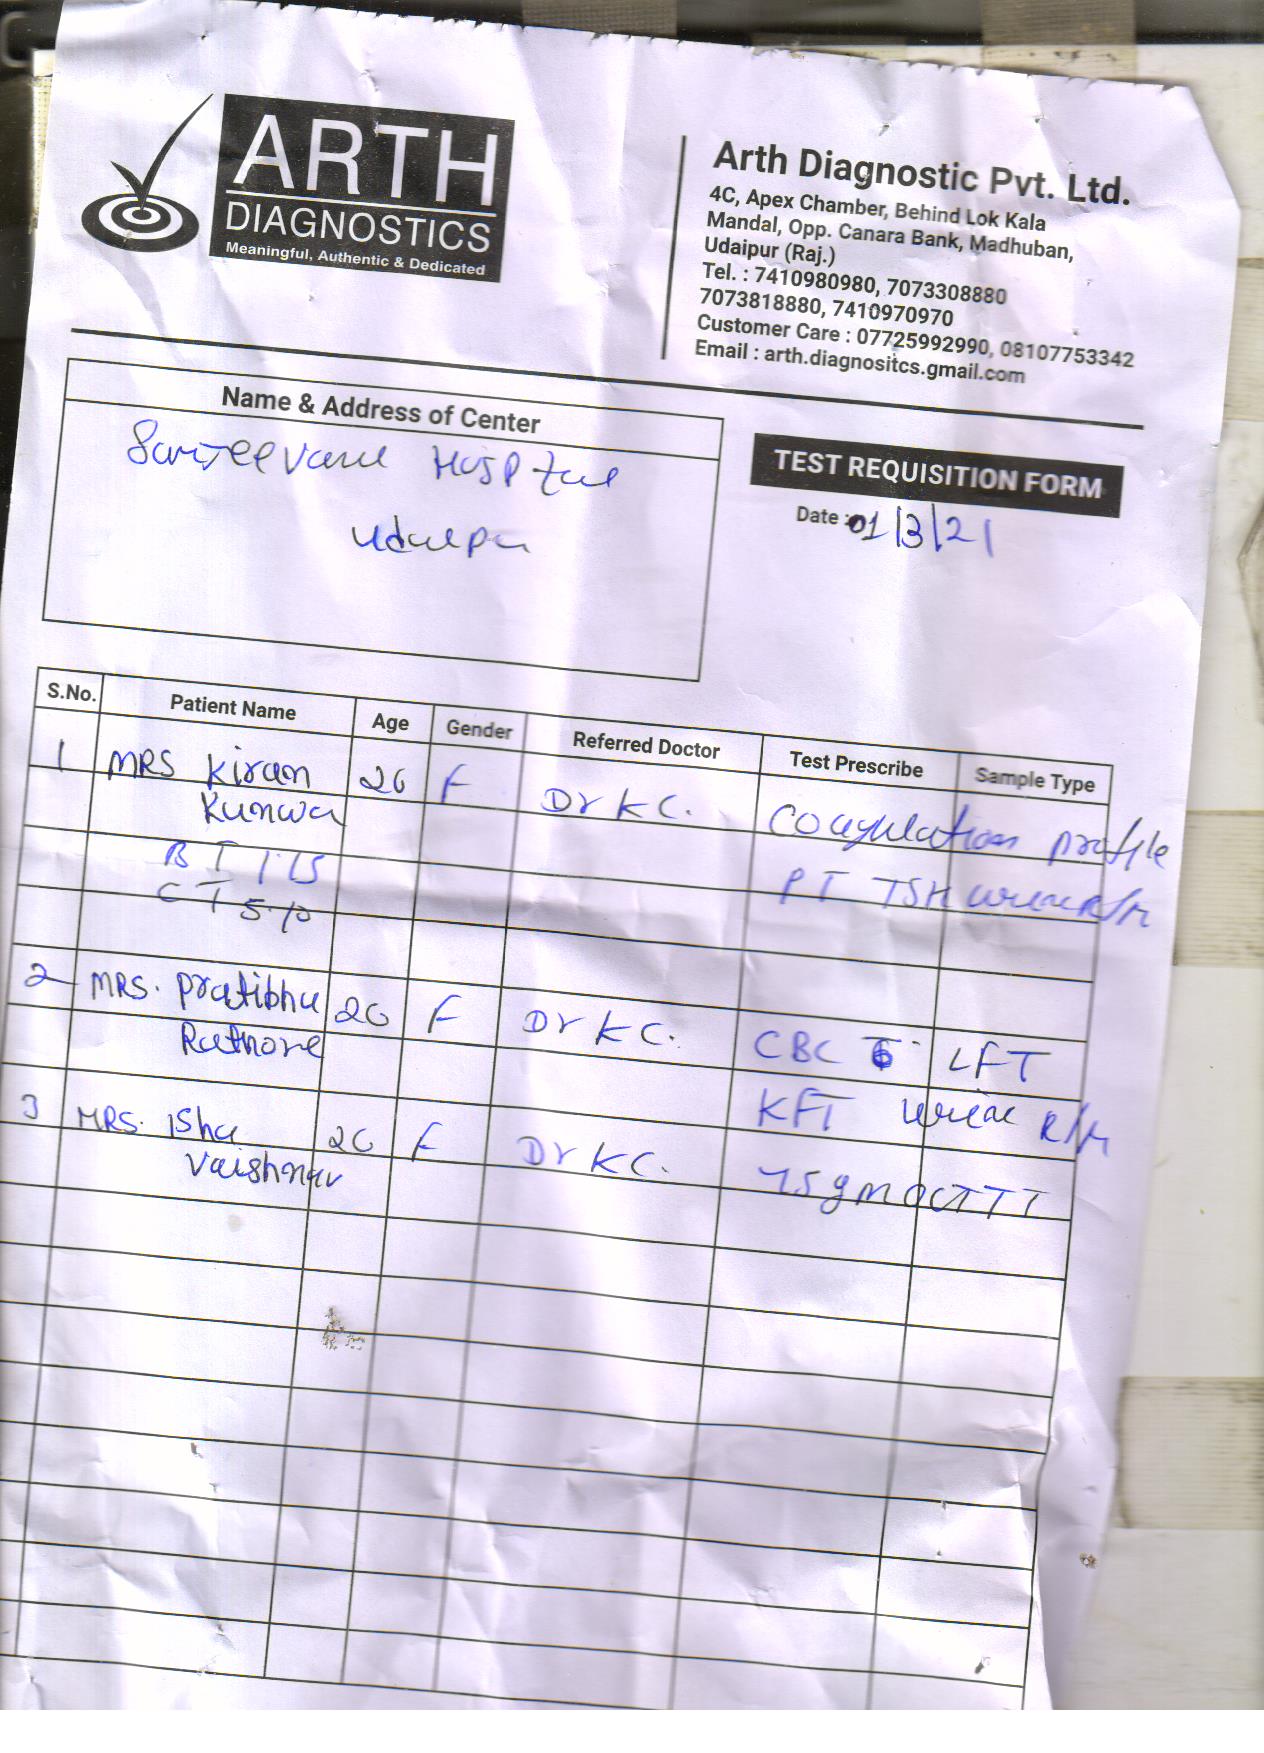 ARTH
DIAGNOSTICS
Meaningful, Authentic & Dedicated
Arth Diagnostic Pvt. Ltd.
4C, Apex Chamber, Behind Lok Kala
Mandal, Opp. Canara Bank, Madhuban,
Udaipur (Raj.)
Tel. : 7410980980, 7073308880
7073818880, 7410970970
Customer Care : 07725992990, 08107753342
Email : arth.diagnositcs.gmail.com
Name & Address of Center
Hospital
Udaipur
TEST REQUISITION FORM
Date : 01/3/21
S.No. Patient Name Age Gender Referred Doctor Test Prescribe Sample Type
1 MRS Kiran 26 F Dr KC. Coagulation profile
Kunwar
BT 1.15 PT TSH R/M
CT 5.10
2 MRS. Pratibha 26 F Dr KC. CBC LFT
Rathore KFT R/M
3 MRS. Isha 26 F Dr KC. 75gm
Vaishnav